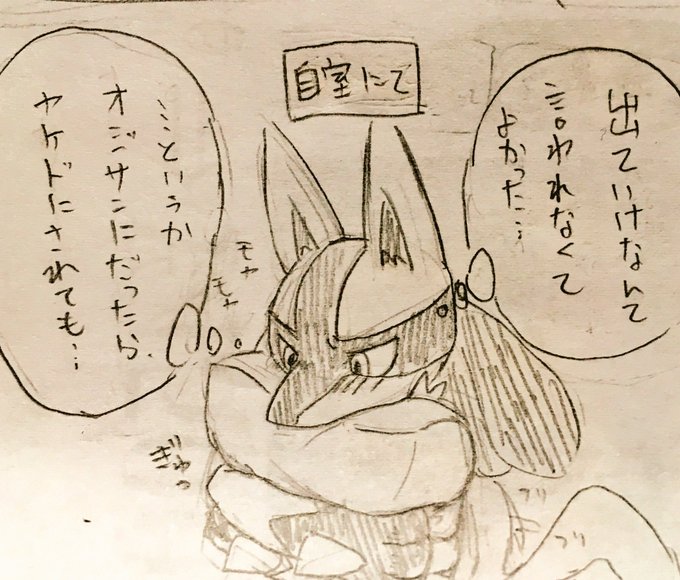 自室にて
出ていけなんて
言われなくて
よかった…
…というか
オジサンにだったら
ヤケドにされても…
モヤ
モヤ
ぎゅっ